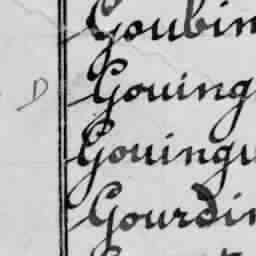 Goubin
D Gouing
Gouingu
Gourdin